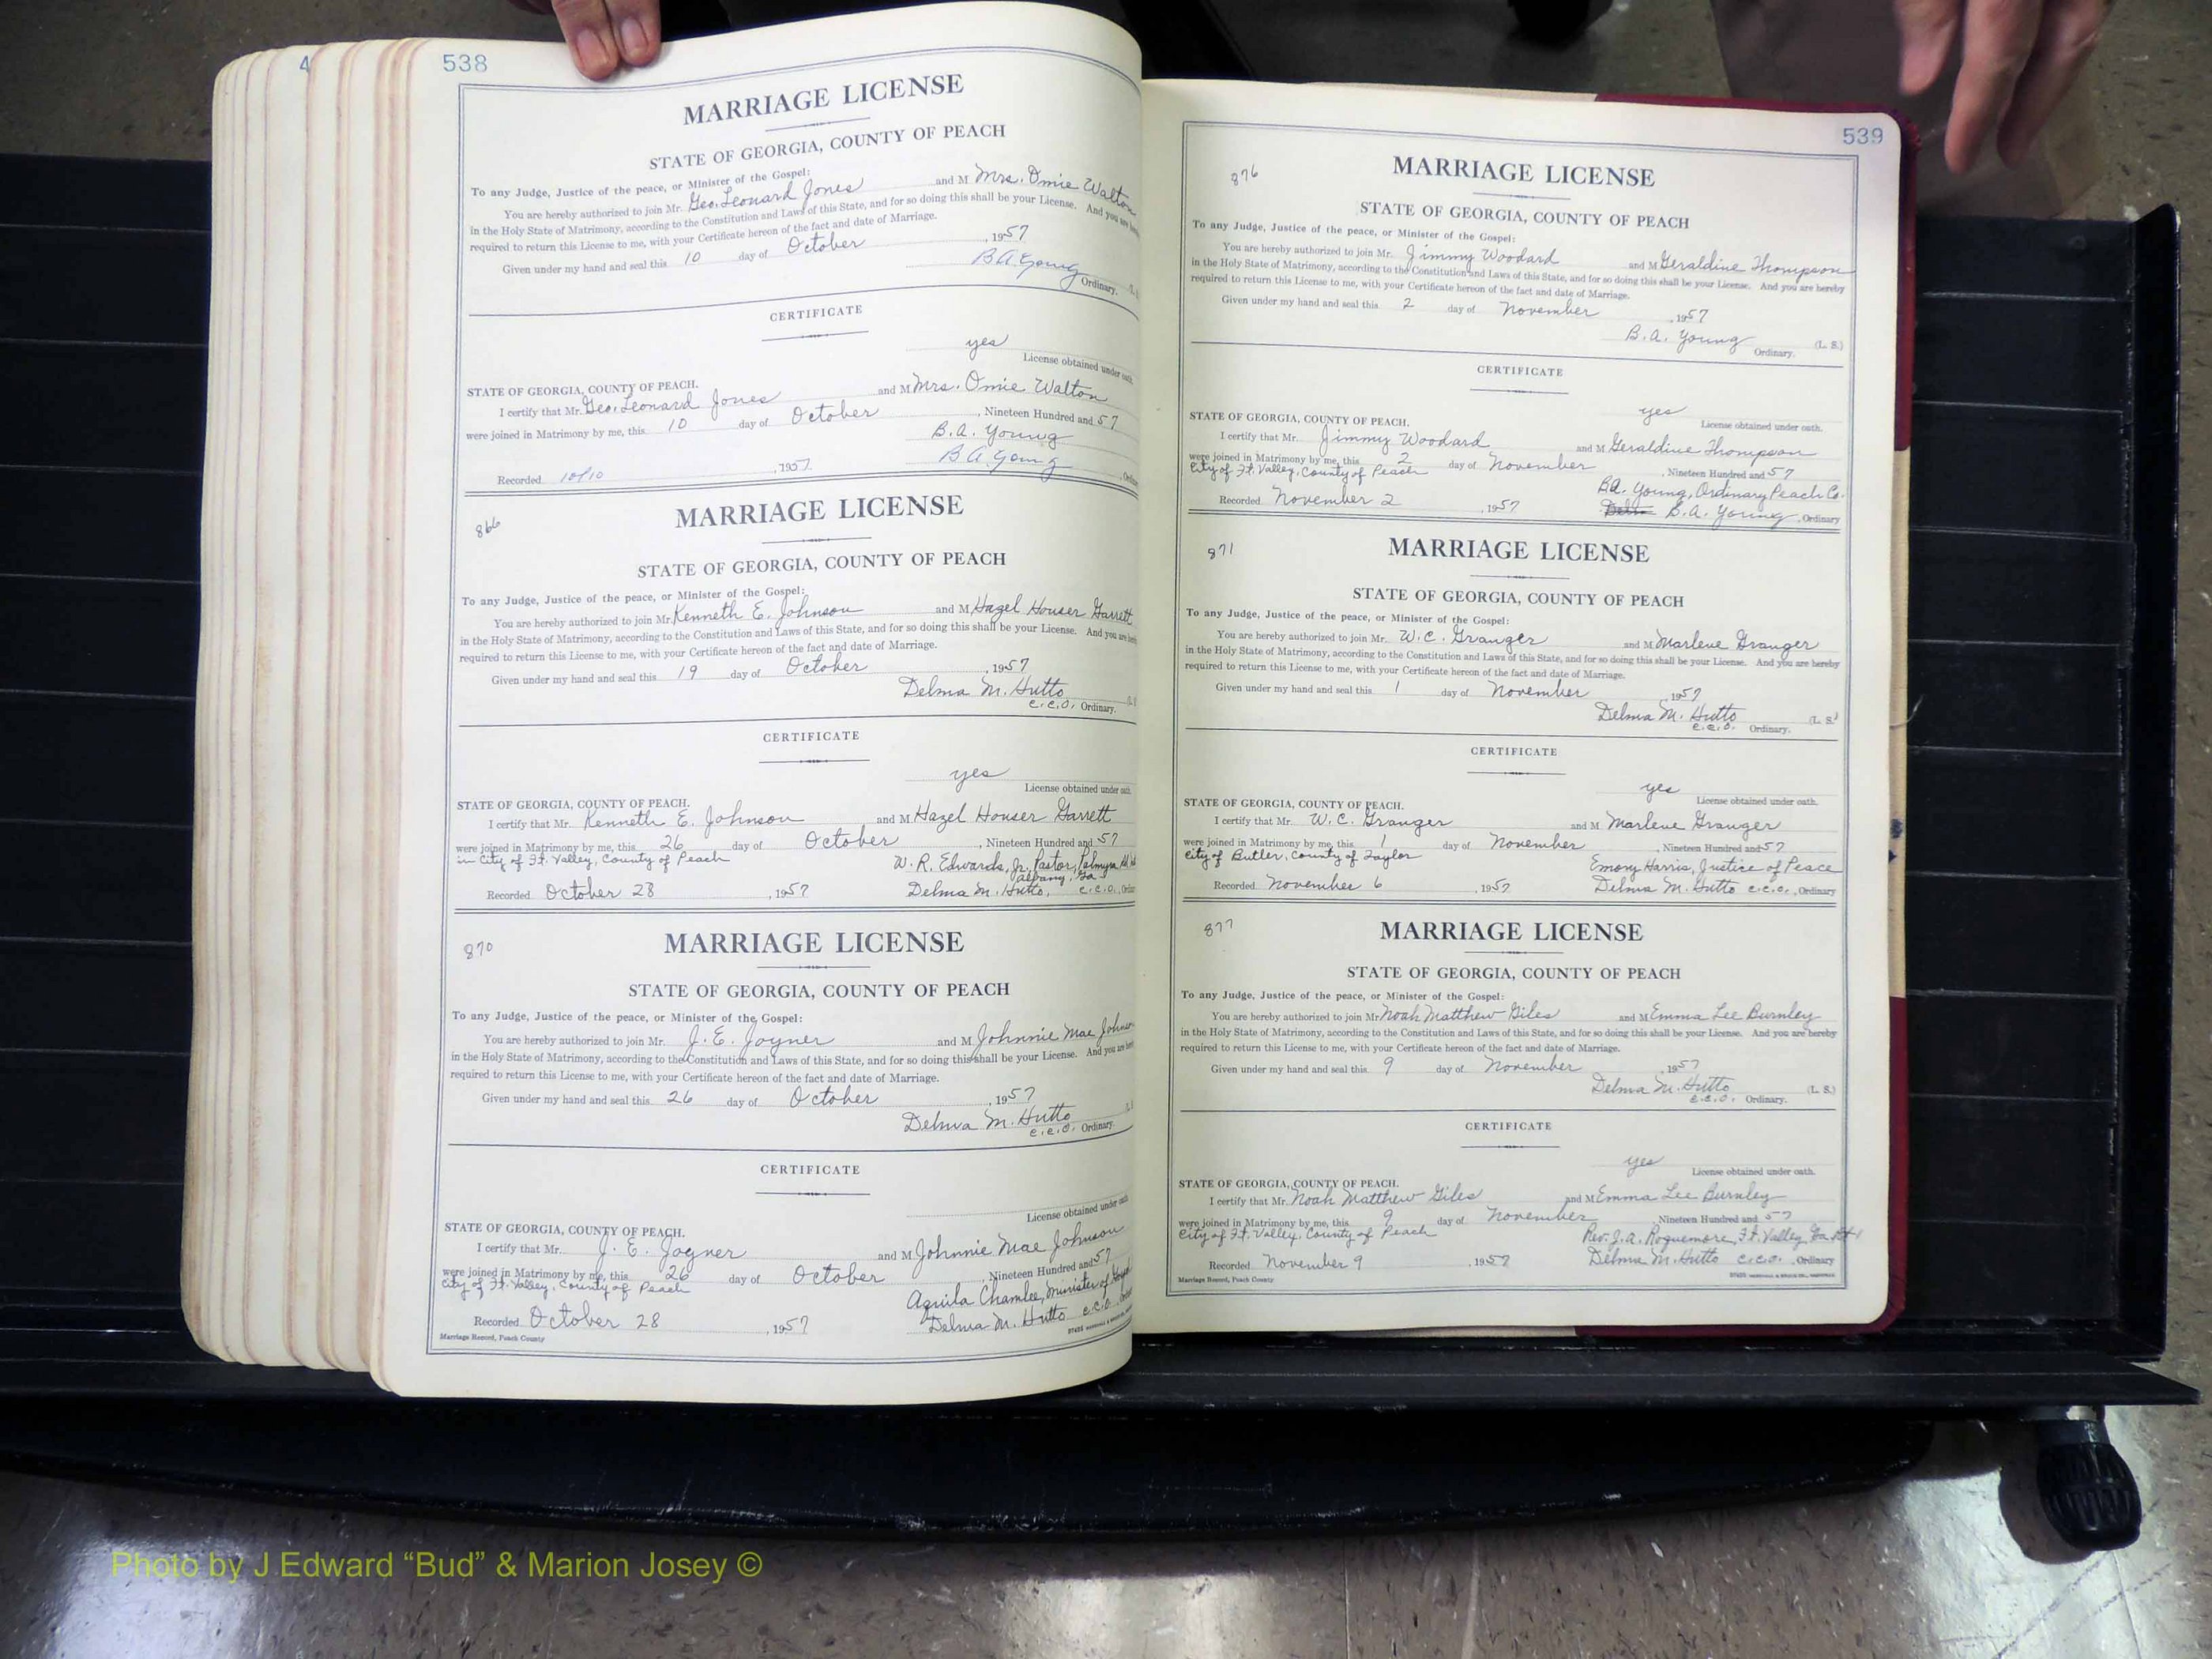 4
538
MARRIAGE LICENSE
STATE OF GEORGIA, COUNTY OF PEACH
To any Judge, Justice of the peace, or Minister of the Gospel:
You are hereby authorized to join Mr. Geo. Leonard Jones and M Mrs. Omie Walton
in the Holy State of Matrimony, according to the Constitution and Laws of this State, and for so doing this shall be your License. And you are
required to return this License to me, with your Certificate hereon of the fact and date of Marriage.
Given under my hand and seal this 10 day of October, 1957
B A Young
Ordinary.
CERTIFICATE
yes
License obtained under oath.
STATE OF GEORGIA, COUNTY OF PEACH.
I certify that Mr. Geo. Leonard Jones and M Mrs. Omie Walton
were joined in Matrimony by me, this 10 day of October, Nineteen Hundred and 57
B. A. Young
Recorded 10/10, 1957. B A Young
866
MARRIAGE LICENSE
STATE OF GEORGIA, COUNTY OF PEACH
To any Judge, Justice of the peace, or Minister of the Gospel:
You are hereby authorized to join Mr. Kenneth E. Johnson and M Hazel Houser Garrett
in the Holy State of Matrimony, according to the Constitution and Laws of this State, and for so doing this shall be your License. And you are
required to return this License to me, with your Certificate hereon of the fact and date of Marriage.
Given under my hand and seal this 19 day of October, 1957
Delma M. Hutto
C.C.O. Ordinary.
CERTIFICATE
yes
License obtained under oath.
STATE OF GEORGIA, COUNTY OF PEACH.
I certify that Mr. Kenneth E. Johnson and M Hazel Houser Garrett
were joined in Matrimony by me, this 26 day of October, Nineteen Hundred and 57
in City of Ft. Valley, County of Peach W. R. Edwards, Jr. Pastor, Palmyra
Albany, Ga
Recorded October 28, 1957 Delma M. Hutto, C.C.O.
870
MARRIAGE LICENSE
STATE OF GEORGIA, COUNTY OF PEACH
To any Judge, Justice of the peace, or Minister of the Gospel:
You are hereby authorized to join Mr. J. E. Joyner and M Johnnie Mae
in the Holy State of Matrimony, according to the Constitution and Laws of this State, and for so doing this shall be your License. And you are
required to return this License to me, with your Certificate hereon of the fact and date of Marriage.
Given under my hand and seal this 26 day of October, 1957
Delma M. Hutto
C.C.O. Ordinary.
CERTIFICATE
License obtained under oath
STATE OF GEORGIA, COUNTY OF PEACH.
I certify that Mr. J. E. Joyner and M Johnnie Mae Johnson
were joined in Matrimony by me, this 26 day of October, Nineteen Hundred and 57
City of Ft. Valley, County of Peach Aquila Chamlee, Minister of
Recorded October 28, 1957 Delma M. Hutto C.C.O.
Marriage Record, Peach County
539
876
MARRIAGE LICENSE
STATE OF GEORGIA, COUNTY OF PEACH
To any Judge, Justice of the peace, or Minister of the Gospel:
You are hereby authorized to join Mr. Jimmy Woodard and M Geraldine Thompson
in the Holy State of Matrimony, according to the Constitution and Laws of this State, and for so doing this shall be your License. And you are hereby
required to return this License to me, with your Certificate hereon of the fact and date of Marriage.
Given under my hand and seal this 2 day of November, 1957
B. A. Young (L. S.)
Ordinary.
CERTIFICATE
yes
License obtained under oath.
STATE OF GEORGIA, COUNTY OF PEACH.
I certify that Mr. Jimmy Woodard and M Geraldine Thompson
were joined in Matrimony by me, this 2 day of November, Nineteen Hundred and 57
City of Ft. Valley, County of Peach B.A. Young, Ordinary Peach Co.
Recorded November 2, 1957 B. A. Young, Ordinary
871
MARRIAGE LICENSE
STATE OF GEORGIA, COUNTY OF PEACH
To any Judge, Justice of the peace, or Minister of the Gospel:
You are hereby authorized to join Mr. W. C. Granger and M Marlene Granger
in the Holy State of Matrimony, according to the Constitution and Laws of this State, and for so doing this shall be your License. And you are hereby
required to return this License to me, with your Certificate hereon of the fact and date of Marriage.
Given under my hand and seal this 1 day of November, 1957
Delma M. Hutto (L. S.)
C.C.O. Ordinary.
CERTIFICATE
yes
License obtained under oath.
STATE OF GEORGIA, COUNTY OF PEACH.
I certify that Mr. W. C. Granger and M Marlene Granger
were joined in Matrimony by me, this 1 day of November, Nineteen Hundred and 57
City of Butler, County of Taylor Emory Harris, Justice of Peace
Recorded November 6, 1957 Delma M. Hutto C.C.O., Ordinary
877
MARRIAGE LICENSE
STATE OF GEORGIA, COUNTY OF PEACH
To any Judge, Justice of the peace, or Minister of the Gospel:
You are hereby authorized to join Mr Noah Matthew Giles and M Emma Lee Burnley
in the Holy State of Matrimony, according to the Constitution and Laws of this State, and for so doing this shall be your License. And you are hereby
required to return this License to me, with your Certificate hereon of the fact and date of Marriage.
Given under my hand and seal this 9 day of November, 1957
Delma M. Hutto (L. S.)
C.C.O. Ordinary.
CERTIFICATE
yes
License obtained under oath.
STATE OF GEORGIA, COUNTY OF PEACH.
I certify that Mr. Noah Matthew Giles and M Emma Lee Burnley
were joined in Matrimony by me, this 9 day of November, Nineteen Hundred and 57
City of Ft. Valley, County of Peach Rev. J. A. Roquemore, Ft. Valley Ga Rt 1
Recorded November 9, 1957 Delma M. Hutto C.C.O., Ordinary
Marriage Record, Peach County
Photo by J Edward “Bud” & Marion Josey ©